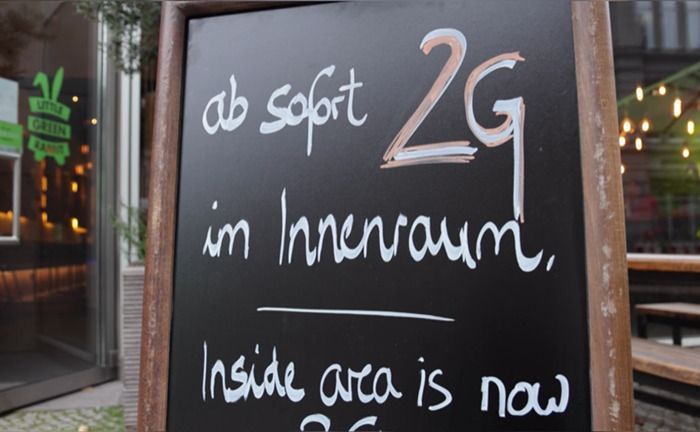 LITTLE
GREEN
RABBIT
ab sofort 2G
im Innenraum.
Inside area is now
2G